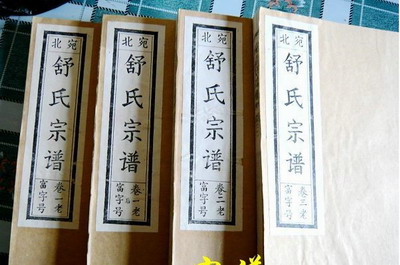 宛北
舒氏宗谱
卷一老
富字号
宛北
舒氏宗谱
卷一老
富字号
宛北
舒氏宗谱
卷二老
富字号
宛北
舒氏宗谱
卷三老
富字号